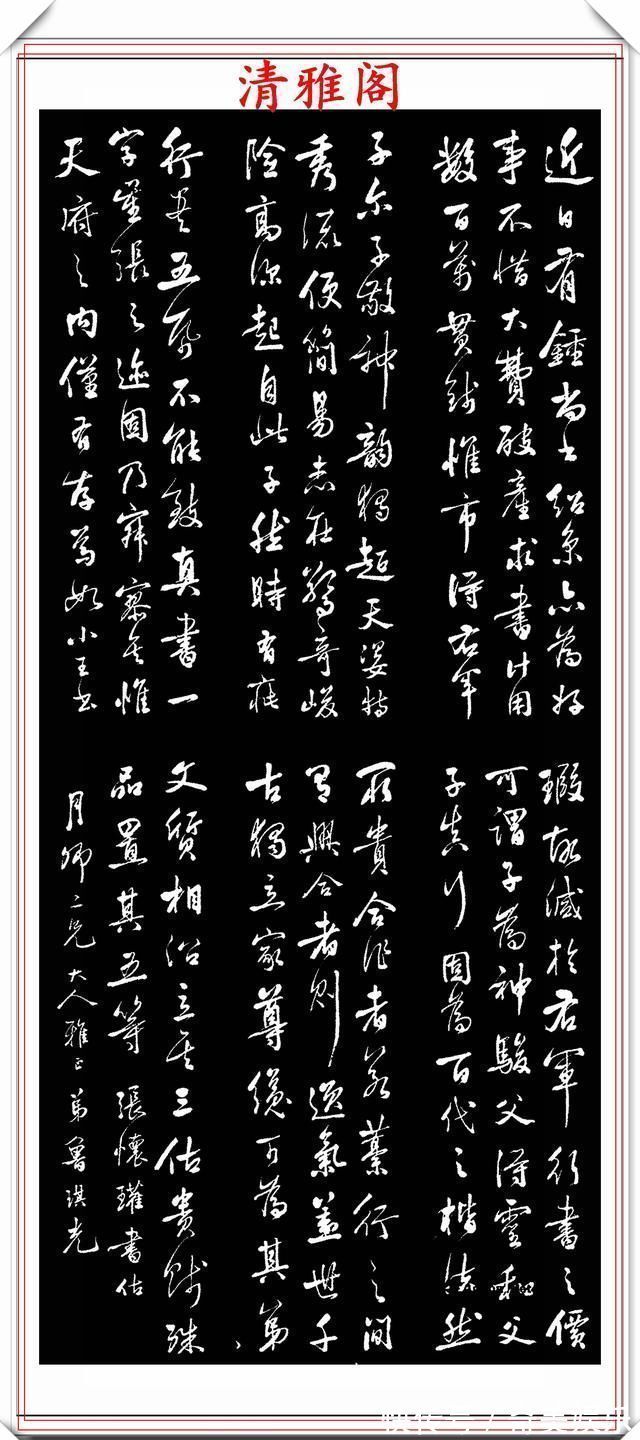 清雅阁
近日有鍾尚書紹京亦為好
事不惜大費破產求書計用
數百萬貫錢惟市得右軍
子尔子敬神韻獨超天姿特
秀流便簡易志在驚奇峻
險高深起自此子然時有疵
行書五帋不能致真書一
字崔張之迹固乃寂寥其惟
天府之內僅有存焉如小王書
瑕故減於右軍行書之價
可謂子為神駿父得靈和父
子真行固為百代之楷法然
所貴合作者若藁行之間
有興合者則逸氣蓋世千
古獨立家尊纔可為其弟
文質相沿立其三估貴賤殊
品置其五等 張懷瓘書估
月卿二兄大人雅正 弟魯琪光